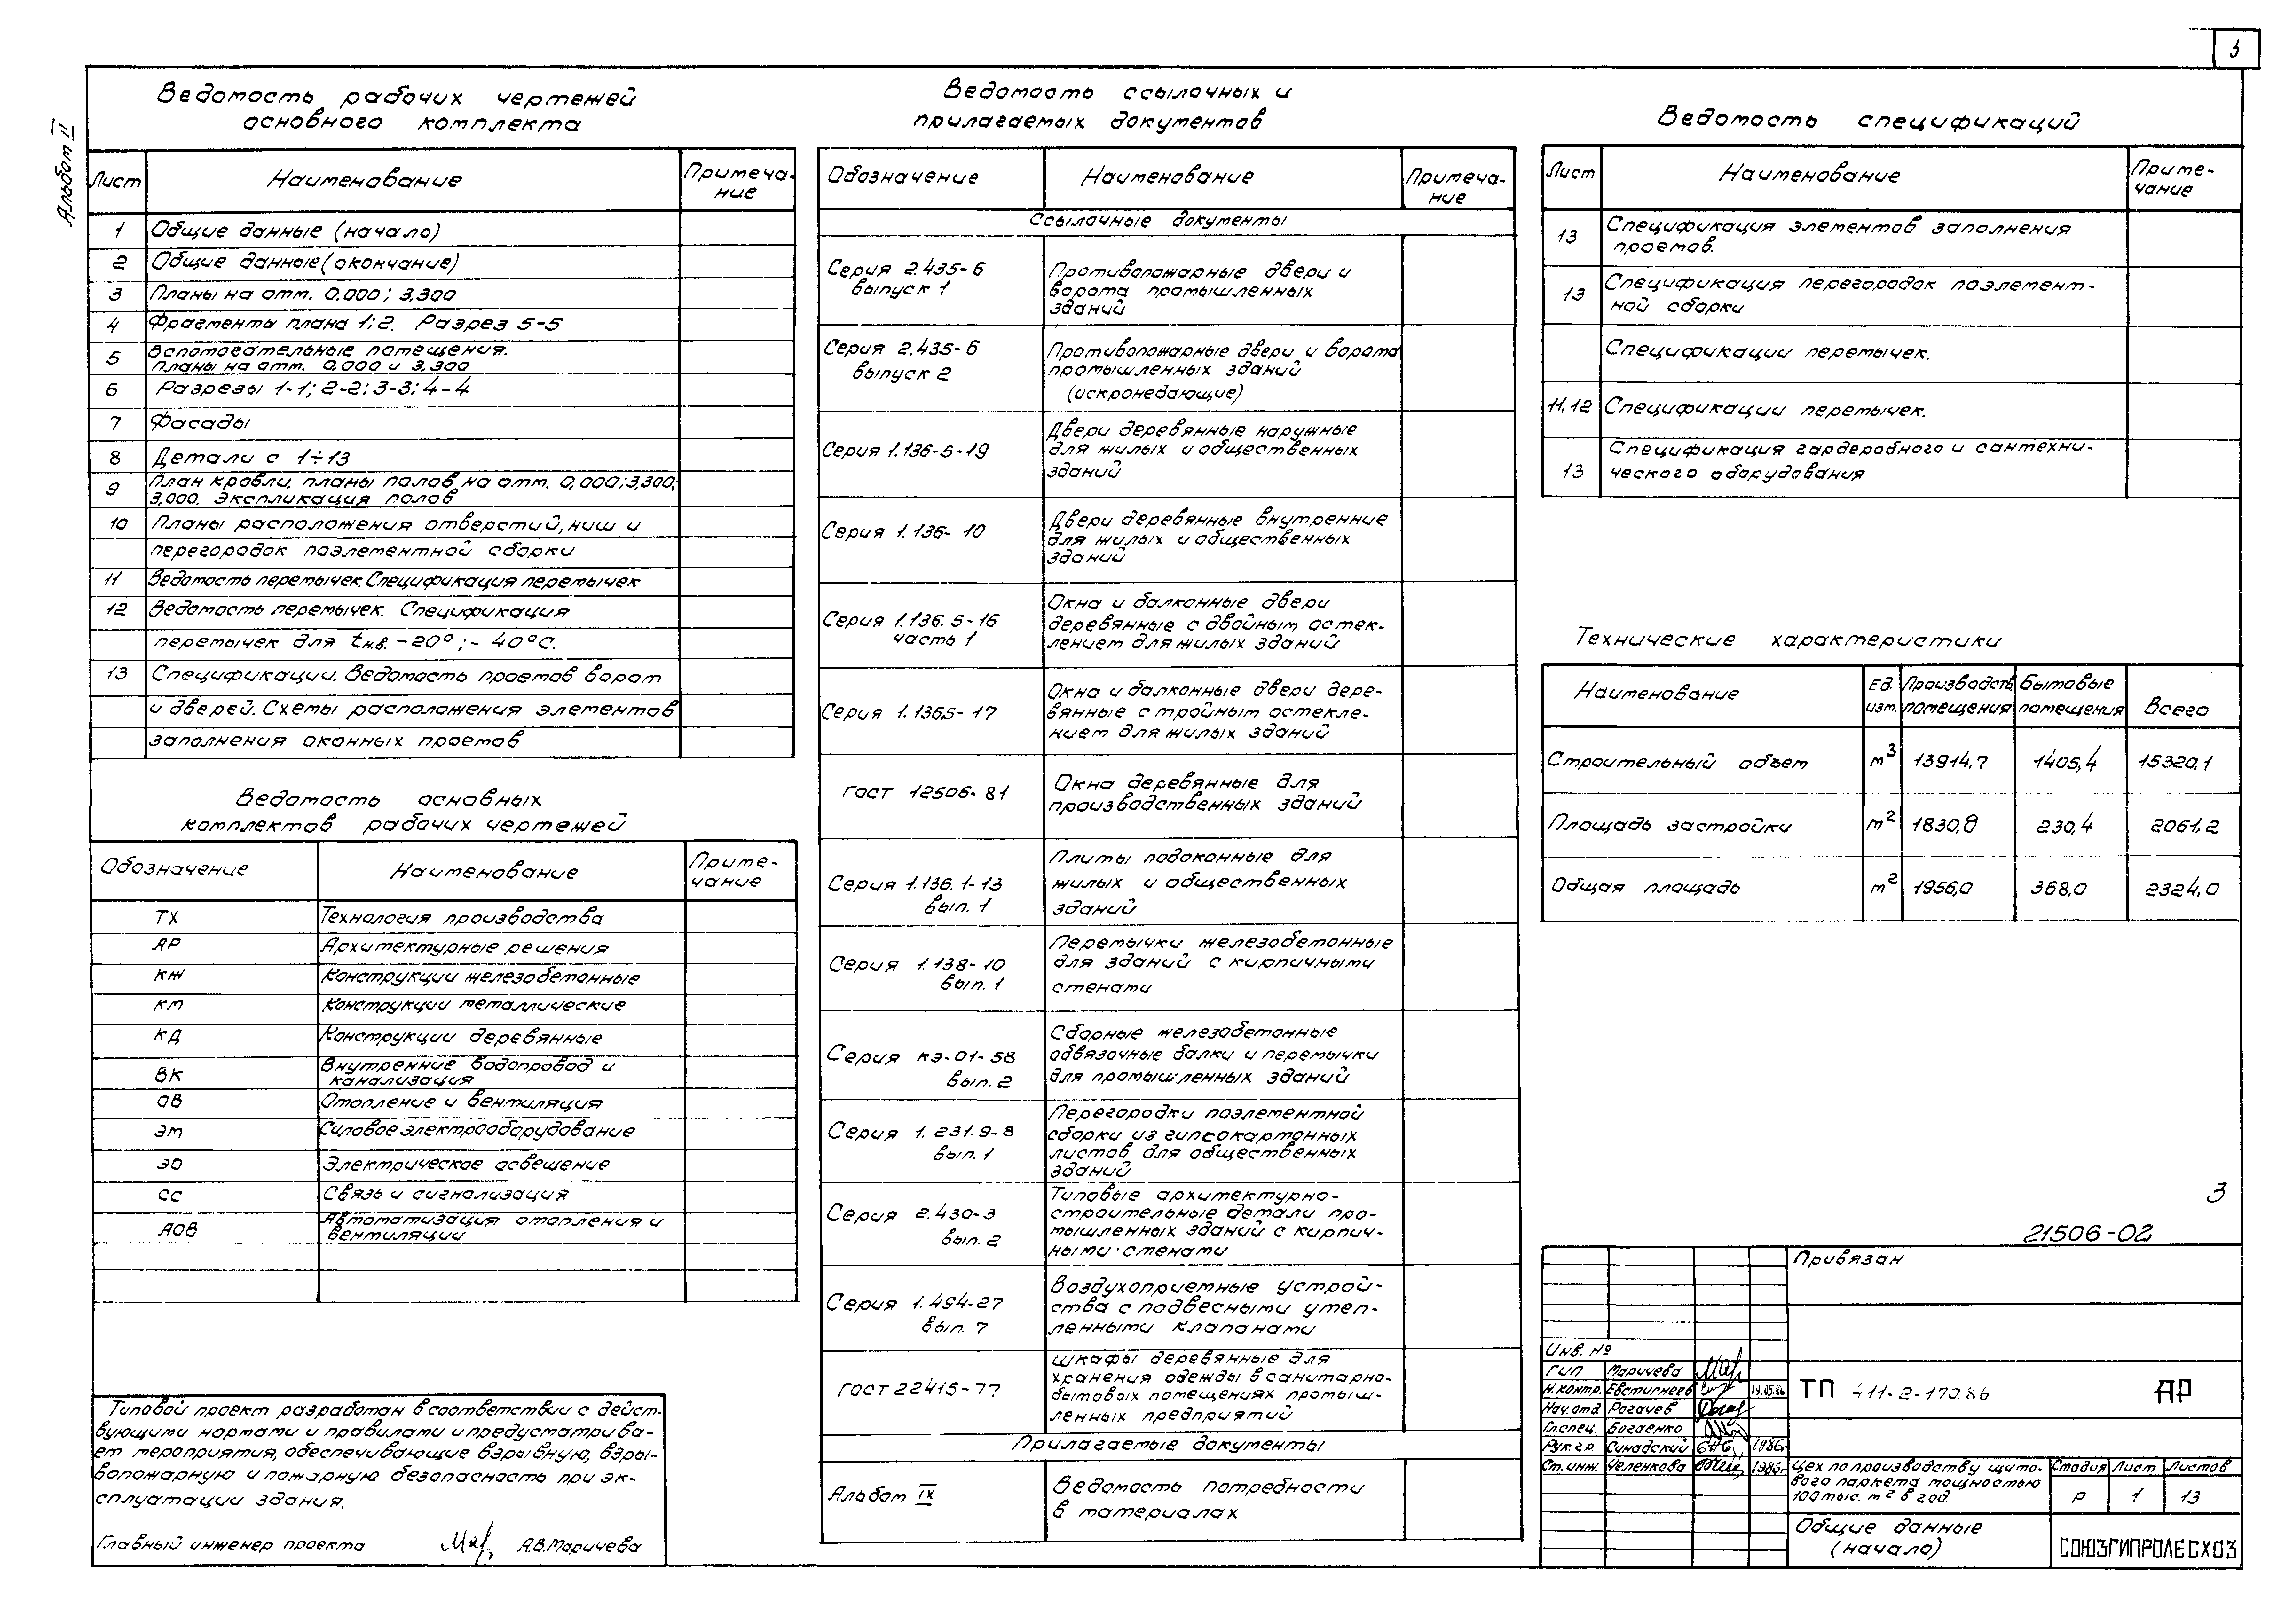 3
Альбом II
Ведомость рабочих чертежей
основного комплекта
Лист Наименование Примеча-
ние
1 Общие данные (начало)
2 Общие данные (окончание)
3 Планы на отм. 0,000; 3,300
4 Фрагменты плана 1; 2. Разрез 5-5
5 Вспомогательные помещения.
Планы на отм. 0,000 и 3,300
6 Разрезы 1-1; 2-2; 3-3; 4-4
7 Фасады
8 Детали с 1÷13
9 План кровли, планы полов на отм. 0,000; 3,300;
3,000. Экспликация полов
10 Планы расположения отверстий, ниш и
перегородок поэлементной сборки
11 Ведомость перемычек. Спецификация перемычек
12 Ведомость перемычек. Спецификация
перемычек для tн.в. -20°; -40°С.
13 Спецификации. Ведомость проемов ворот
и дверей. Схемы расположения элементов
заполнения оконных проемов
Ведомость основных
комплектов рабочих чертежей
Обозначение Наименование Приме-
чание
ТХ Технология производства
АР Архитектурные решения
КЖ Конструкции железобетонные
КМ Конструкции металлические
КД Конструкции деревянные
ВК Внутренние водопровод и
канализация
ОВ Отопление и вентиляция
ЭМ Силовое электрооборудование
ЭО Электрическое освещение
СС Связь и сигнализация
АОВ Автоматизация отопления и
вентиляции
Типовой проект разработан в соответствии с дейст-
вующими нормами и правилами и предусматрива-
ет мероприятия, обеспечивающие взрывную, взры-
вопожарную и пожарную безопасность при эк-
сплуатации здания.
Главный инженер проекта А.В.Маричева
Ведомость ссылочных и
прилагаемых документов
Обозначение Наименование Примеча-
ние
Ссылочные документы
Серия 2.435-6
выпуск 1
Противопожарные двери и
ворота промышленных
зданий
Серия 2.435-6
выпуск 2
Противопожарные двери и ворота
промышленных зданий
(искронедающие)
Серия 1.136-5-19
Двери деревянные наружные
для жилых и общественных
зданий
Серия 1.136-10
Двери деревянные внутренние
для жилых и общественных
зданий
Серия 1.136.5-16
часть 1
Окна и балконные двери
деревянные с двойным остек-
лением для жилых зданий
Серия 1.136.5-17
Окна и балконные двери дере-
вянные с тройным остекле-
нием для жилых зданий
ГОСТ 12506-81
Окна деревянные для
производственных зданий
Серия 1.136.1-13
вып. 1
Плиты подоконные для
жилых и общественных
зданий
Серия 1.138-10
вып. 1
Перемычки железобетонные
для зданий с кирпичными
стенами
Серия КЭ-01-58
вып. 2
Сборные железобетонные
обвязочные балки и перемычки
для промышленных зданий
Серия 1.231.9-8
вып. 1
Перегородки поэлементной
сборки из гипсокартонных
листов для общественных
зданий
Серия 2.430-3
вып. 2
Типовые архитектурно-
строительные детали про-
мышленных зданий с кирпич-
ными стенами
Серия 1.494-27
вып. 7
Воздухоприемные устрой-
ства с подвесными утеп-
ленными клапанами
ГОСТ 22415-77
Шкафы деревянные для
хранения одежды в санитарно-
бытовых помещениях промыш-
ленных предприятий
Прилагаемые документы
Альбом IX
Ведомость потребности
в материалах
Ведомость спецификаций
Лист Наименование Приме-
чание
13 Спецификация элементов заполнения
проемов.
13 Спецификация перегородок поэлемент-
ной сборки
Спецификации перемычек.
11,12 Спецификации перемычек.
13 Спецификация гардеробного и сантехни-
ческого оборудования
Технические характеристики
Наименование Ед. изм. Производств. помещения Бытовые помещения Всего
Строительный объем м³ 13914,7 1405,4 15320,1
Площадь застройки м² 1830,8 230,4 2061,2
Общая площадь м² 1956,0 368,0 2324,0
3
21506-02
Привязан
Инв. №
ГИП Маричева
Н.контр. Евстигнеев 19.05.86
Нач.отд Рогачев
Гл.спец. Богаенко
Рук.гр. Синадский 1986г
Ст. инж. Челенкова 1986г
ТП 411-2-170.86 АР
Цех по производству щито-
вого паркета мощностью
100 тыс. м² в год.
Стадия Лист Листов
Р 1 13
Общие данные
(начало)
СОЮЗГИПРОЛЕСХОЗ